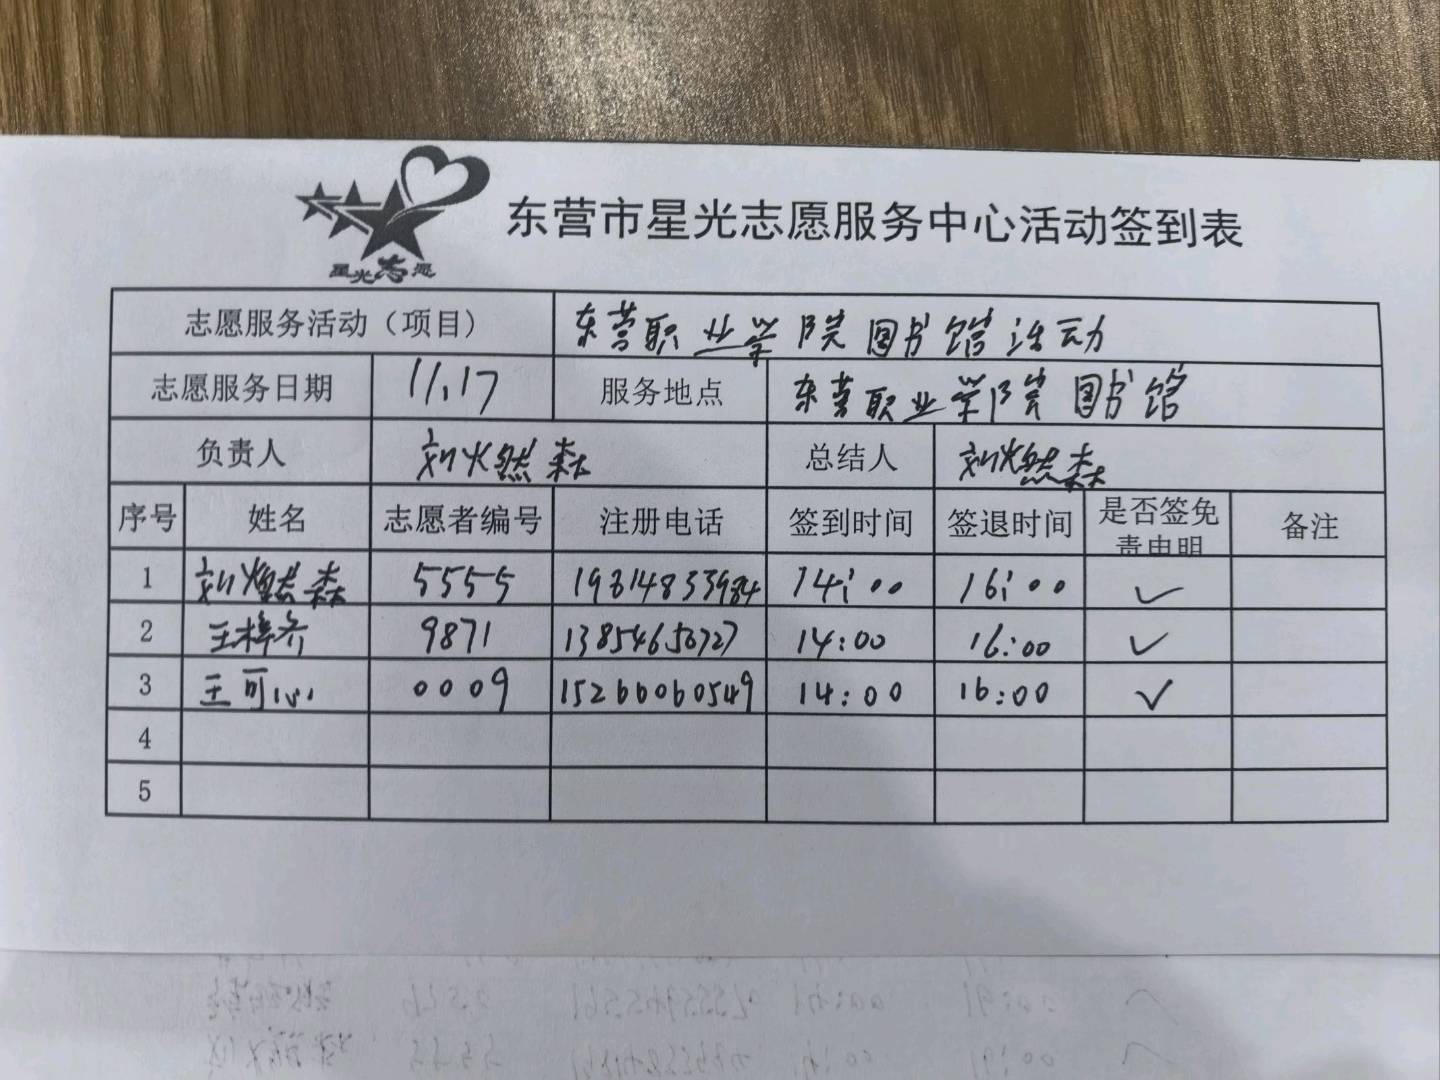 星光志愿
东营市星光志愿服务中心活动签到表
志愿服务活动（项目） 东营职业学院图书馆活动
志愿服务日期 11.17 服务地点 东营职业学院图书馆
负责人 刘燃森 总结人 刘燃森
序号 姓名 志愿者编号 注册电话 签到时间 签退时间 是否签免责申明 备注
1 刘燃森 5555 14:00 16:00 ✓
2 王梓齐 9871 14:00 16:00 ✓
3 王可心 0009 15266060549 14:00 16:00 ✓
4
5